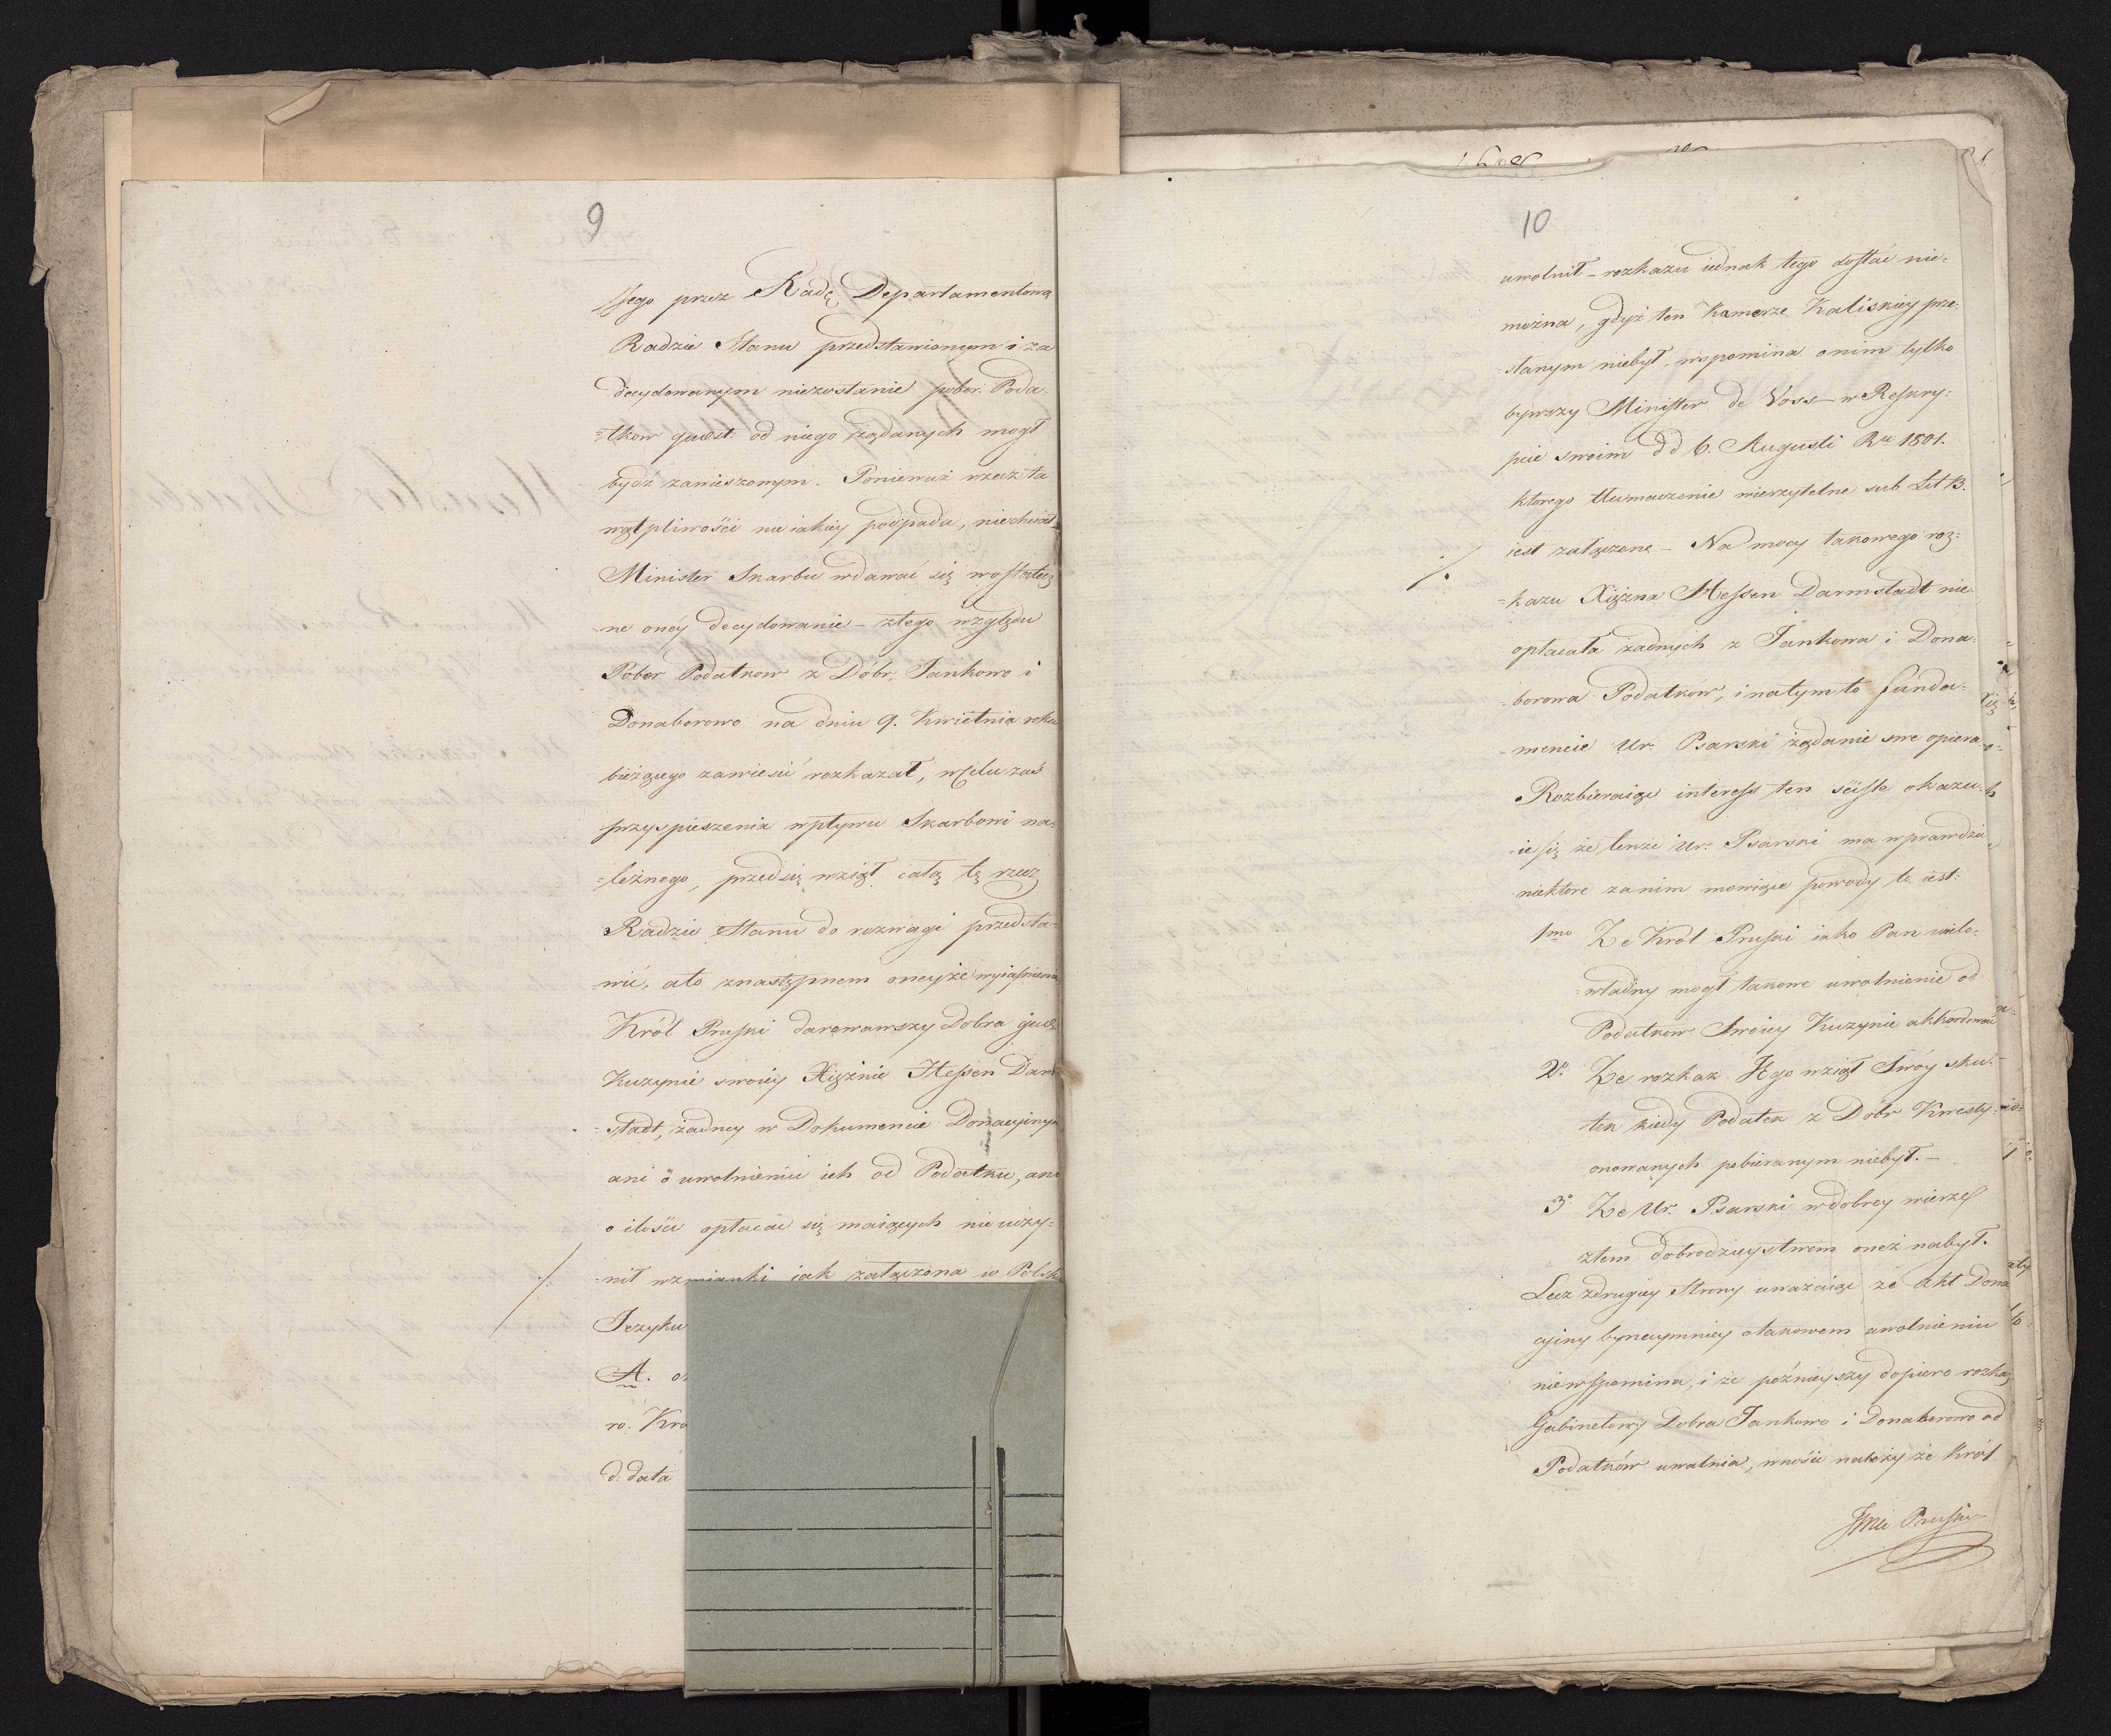 9
Jego przez Radę Departamentową
Radzie Stanu przedstawionym i za
decydowanym niezostanie pobor. Poda-
=tkow quaest: od niego żądanych mogł
bydź zawieszonym. Ponieważ rzecz ta
wątpliwości nie iakiey podpada, niechciał
Minister Skarbu wdawać się w ostatecz
ne oney decydowanie – z tego względu
Pobor Podatkow z Dóbr. Jankowo i
Donaborowo na dniu 9. Kwietnia roku
bieżącego zawiesić rozkazał, w Celu zaś
przyspieszenia wpływu Skarbowi na-
=leżnego, przedsię wziął całą tę rzecz
Radzie Stanu do rozwagi przedsta-
=wić, a to z następnem oneyże wyiaśnieniem
Król Pruski darowawszy Dobra quest
Kuzynie swoiey Xiężnie Hessen Darm
=stadt, żadney w Dokumencie Donacyinym
ani o uwolnieniu ich od Podatku, ani
o ilości opłacać się maiących nie uczy-
=nił wzmianki iak załączona w Polsk
Języku
A.
ro. Kro
d: data
10
uwolnił – rozkazu iednak tego dostać nie-
można, gdyż ten Kamerze Kaliskiey prze-
słanym niebył, wspomina o nim tylko
bywszy Minister de Voss w Reskry-
pcie swoim dd 6. Augusti Ru 1801.
ktorego tłumaczenie wierzytelne sub Lit B.
iest załączone – Na mocy takowego roz-
=kazu Xiężna Hessen Darmstadt nie
opłacała żadnych z Jankowa i Dona-
=borowa Podatków, i na tym to funda-
=mencie Ur. Psarski żądanie swe opiera
Rozbieraiąc interess ten ściśle okazu-
=ie się że tenże Ur. Psarski ma wprawdzie
niektore za nim mowiące powody to iest:
1mo Że Król Pruski iako Pan wielo-
=władny mogł takowe uwolnienie od
Podatkow Swoiey Kuzynie akkordować
2o. Że rozkaz Jego wziął Swóy sku-
tek kiedy Podatek z Dóbr Kwesty-
onowanych pobieranym niebył. –
3o Że Ur. Psarski w dobrey wierze
z tem dobrodzieystwem oneż nabył.
Lecz z drugiey Strony uważaiąc że Akt Dona
cyiny bynaymniey o takowem uwolnieniu
nie wspomina, i że poźnieyszy dopiero rozkaz
Gabinetowy Dobra Jankowo i Donaborowo od
Podatków uwalnia, wnośić należy że Król
Pruski